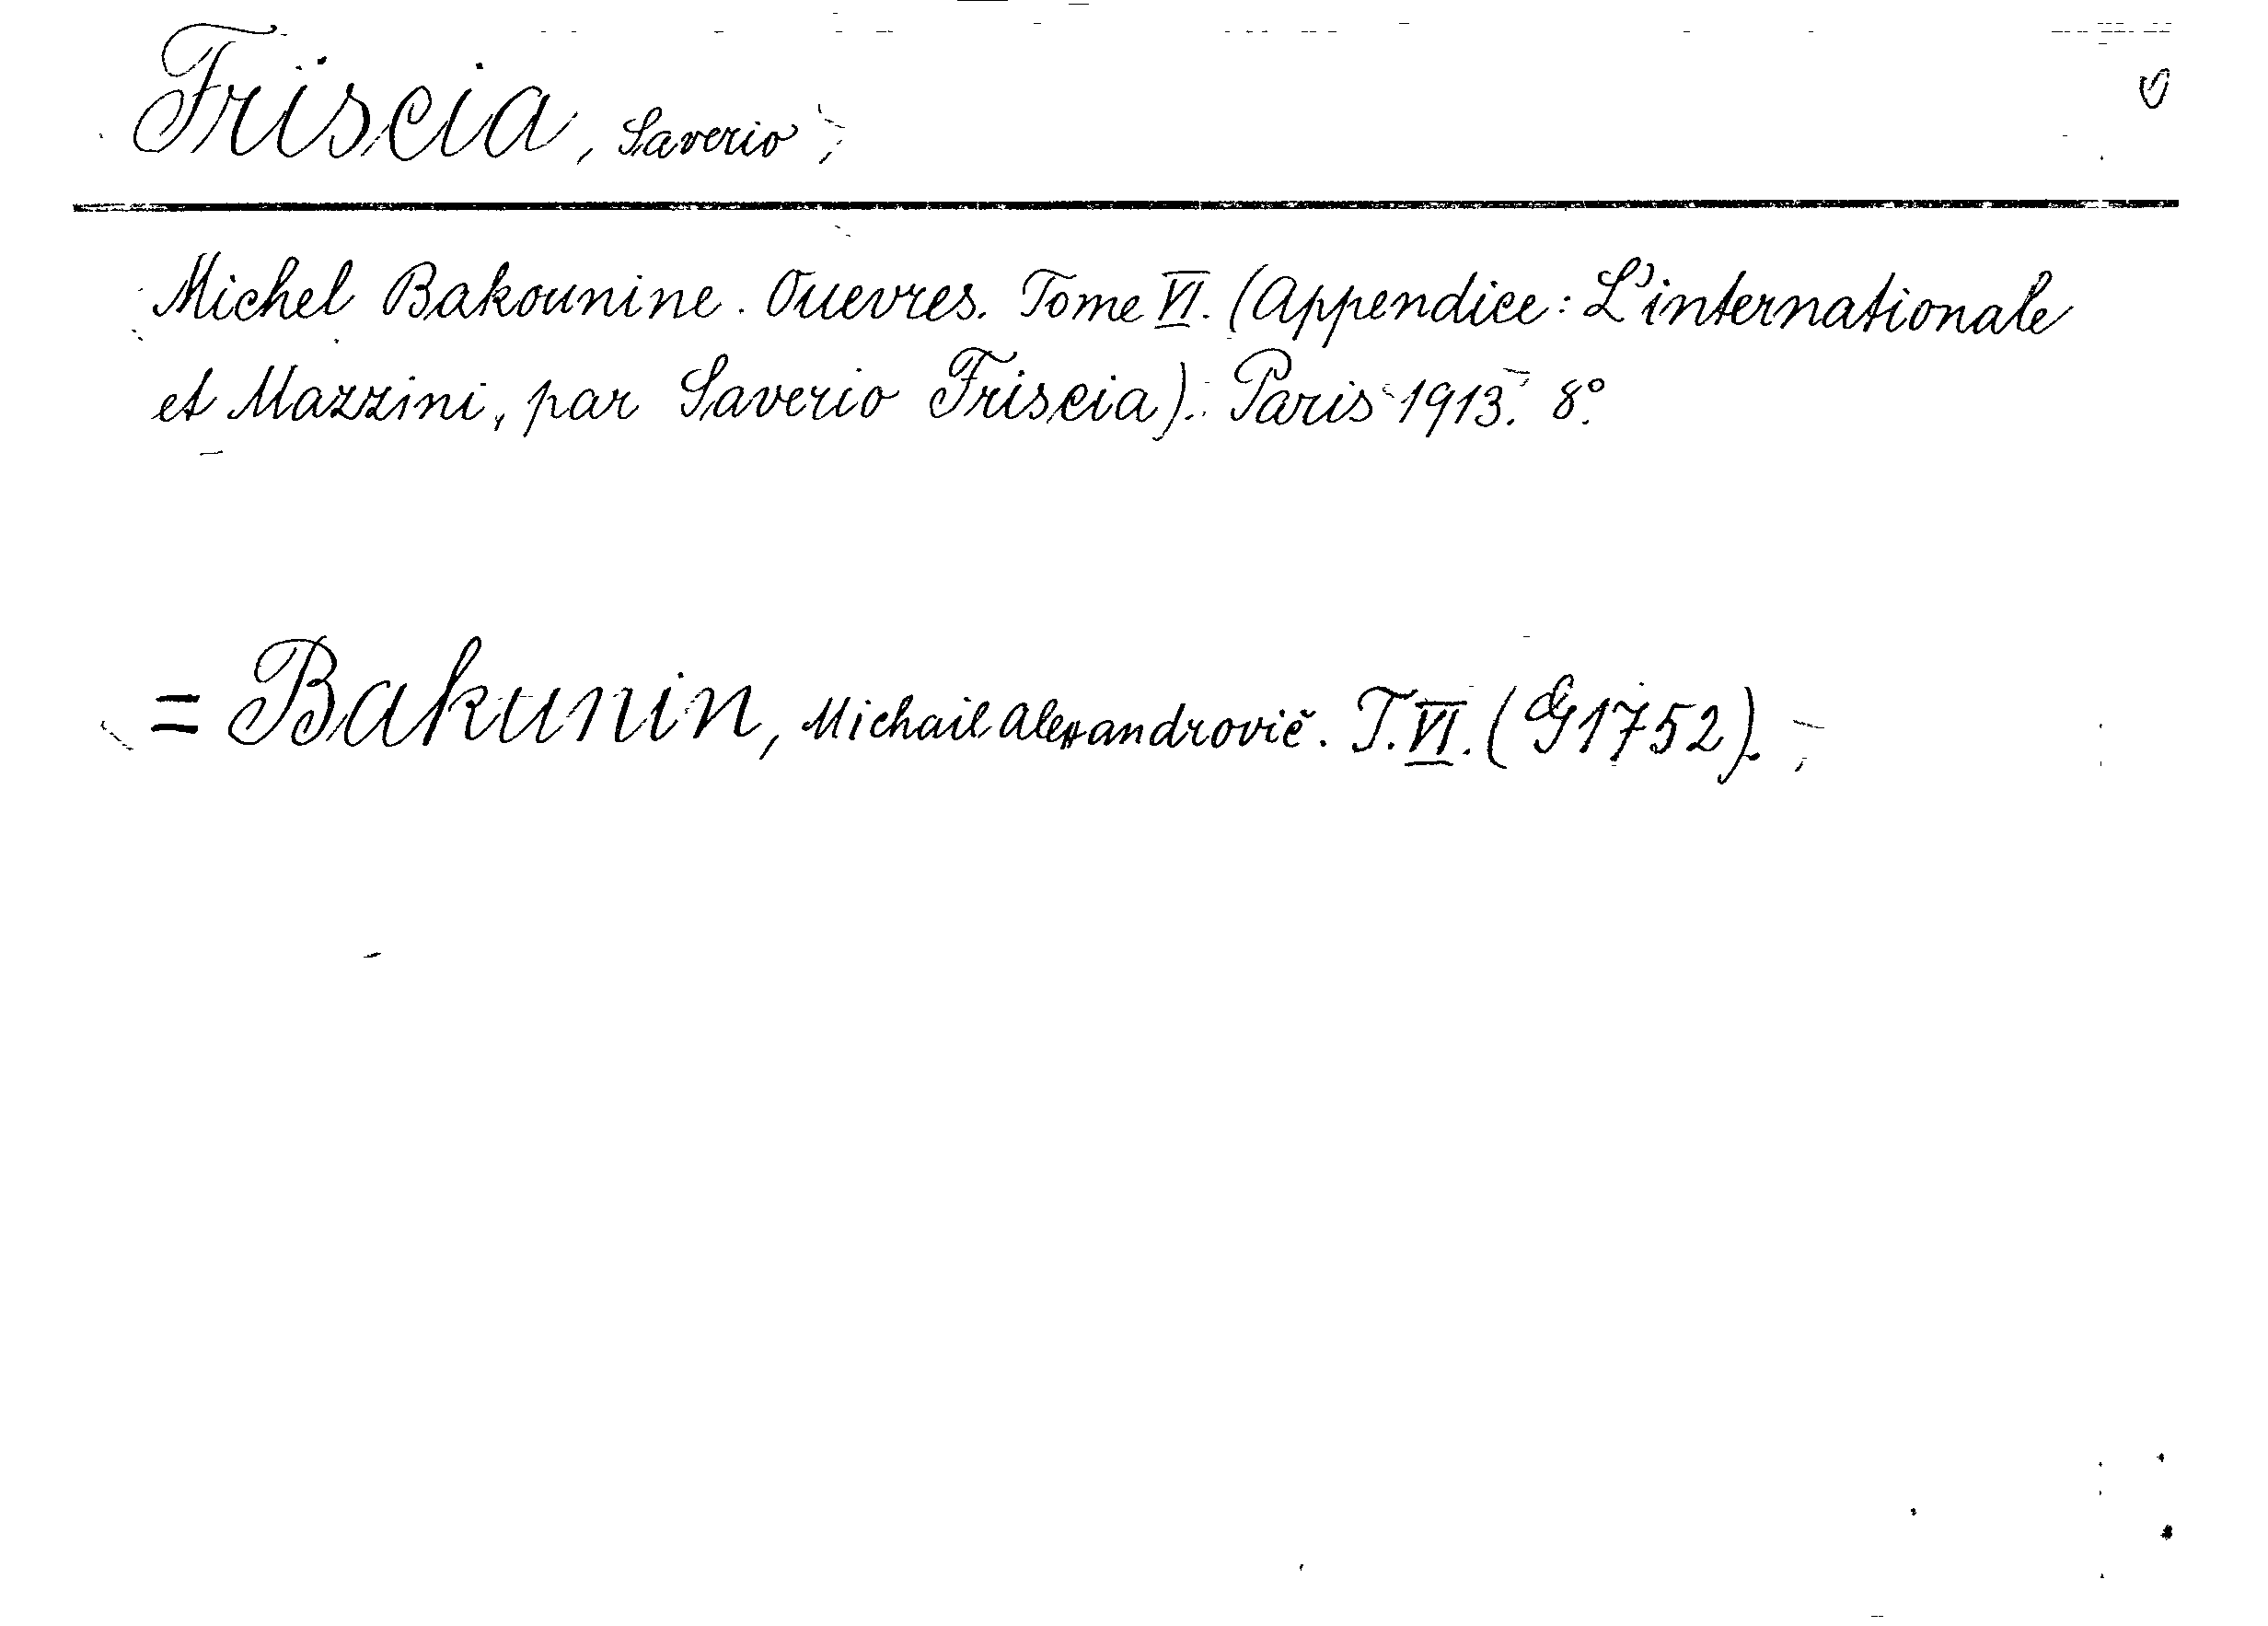 Friscia, Saverio
Michel Bakounine. Ouevres. Tome VI. (Appendice: L'internationale
et Mazzini, par Saverio Friscia). Paris 1913. 8°.
= Bakunin, Michail Alexandrovič. T. VI. (G 1752).